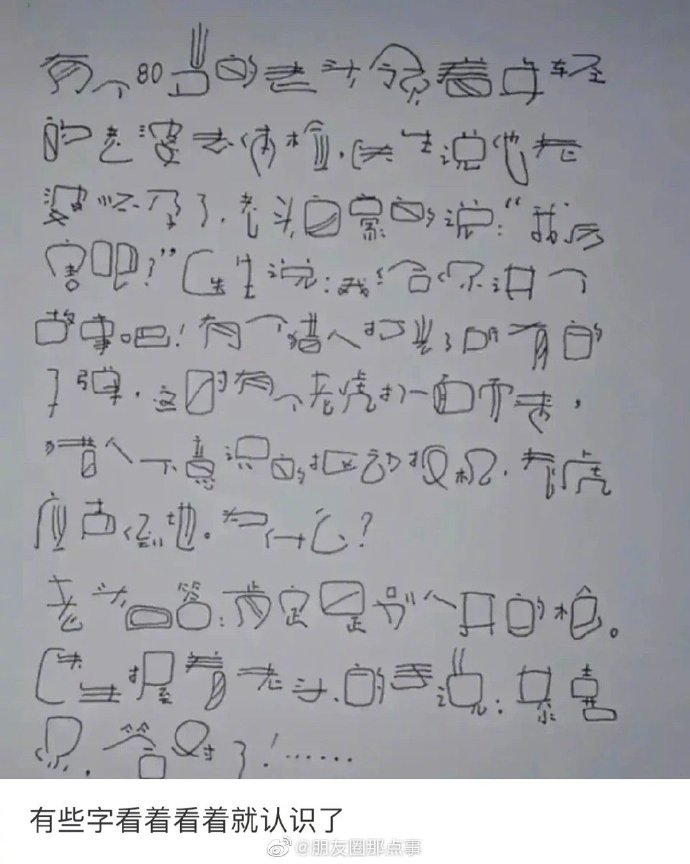 有个80岁的老头领着年轻
的老婆去体检，医生说他老
婆怀孕了，老头自豪的说：“我厉
害吧？”医生说：我给你讲个
故事吧！有一个猎人打光了所有的
子弹，这时有个老虎扑面而来，
猎人下意识的抠动扳机，老虎
应声倒地。为什么？
老头回答：肯定是别人开的枪。
医生握着老头的手说：恭喜
您，答对了！……
有些字看着看着就认识了
@朋友圈那点事